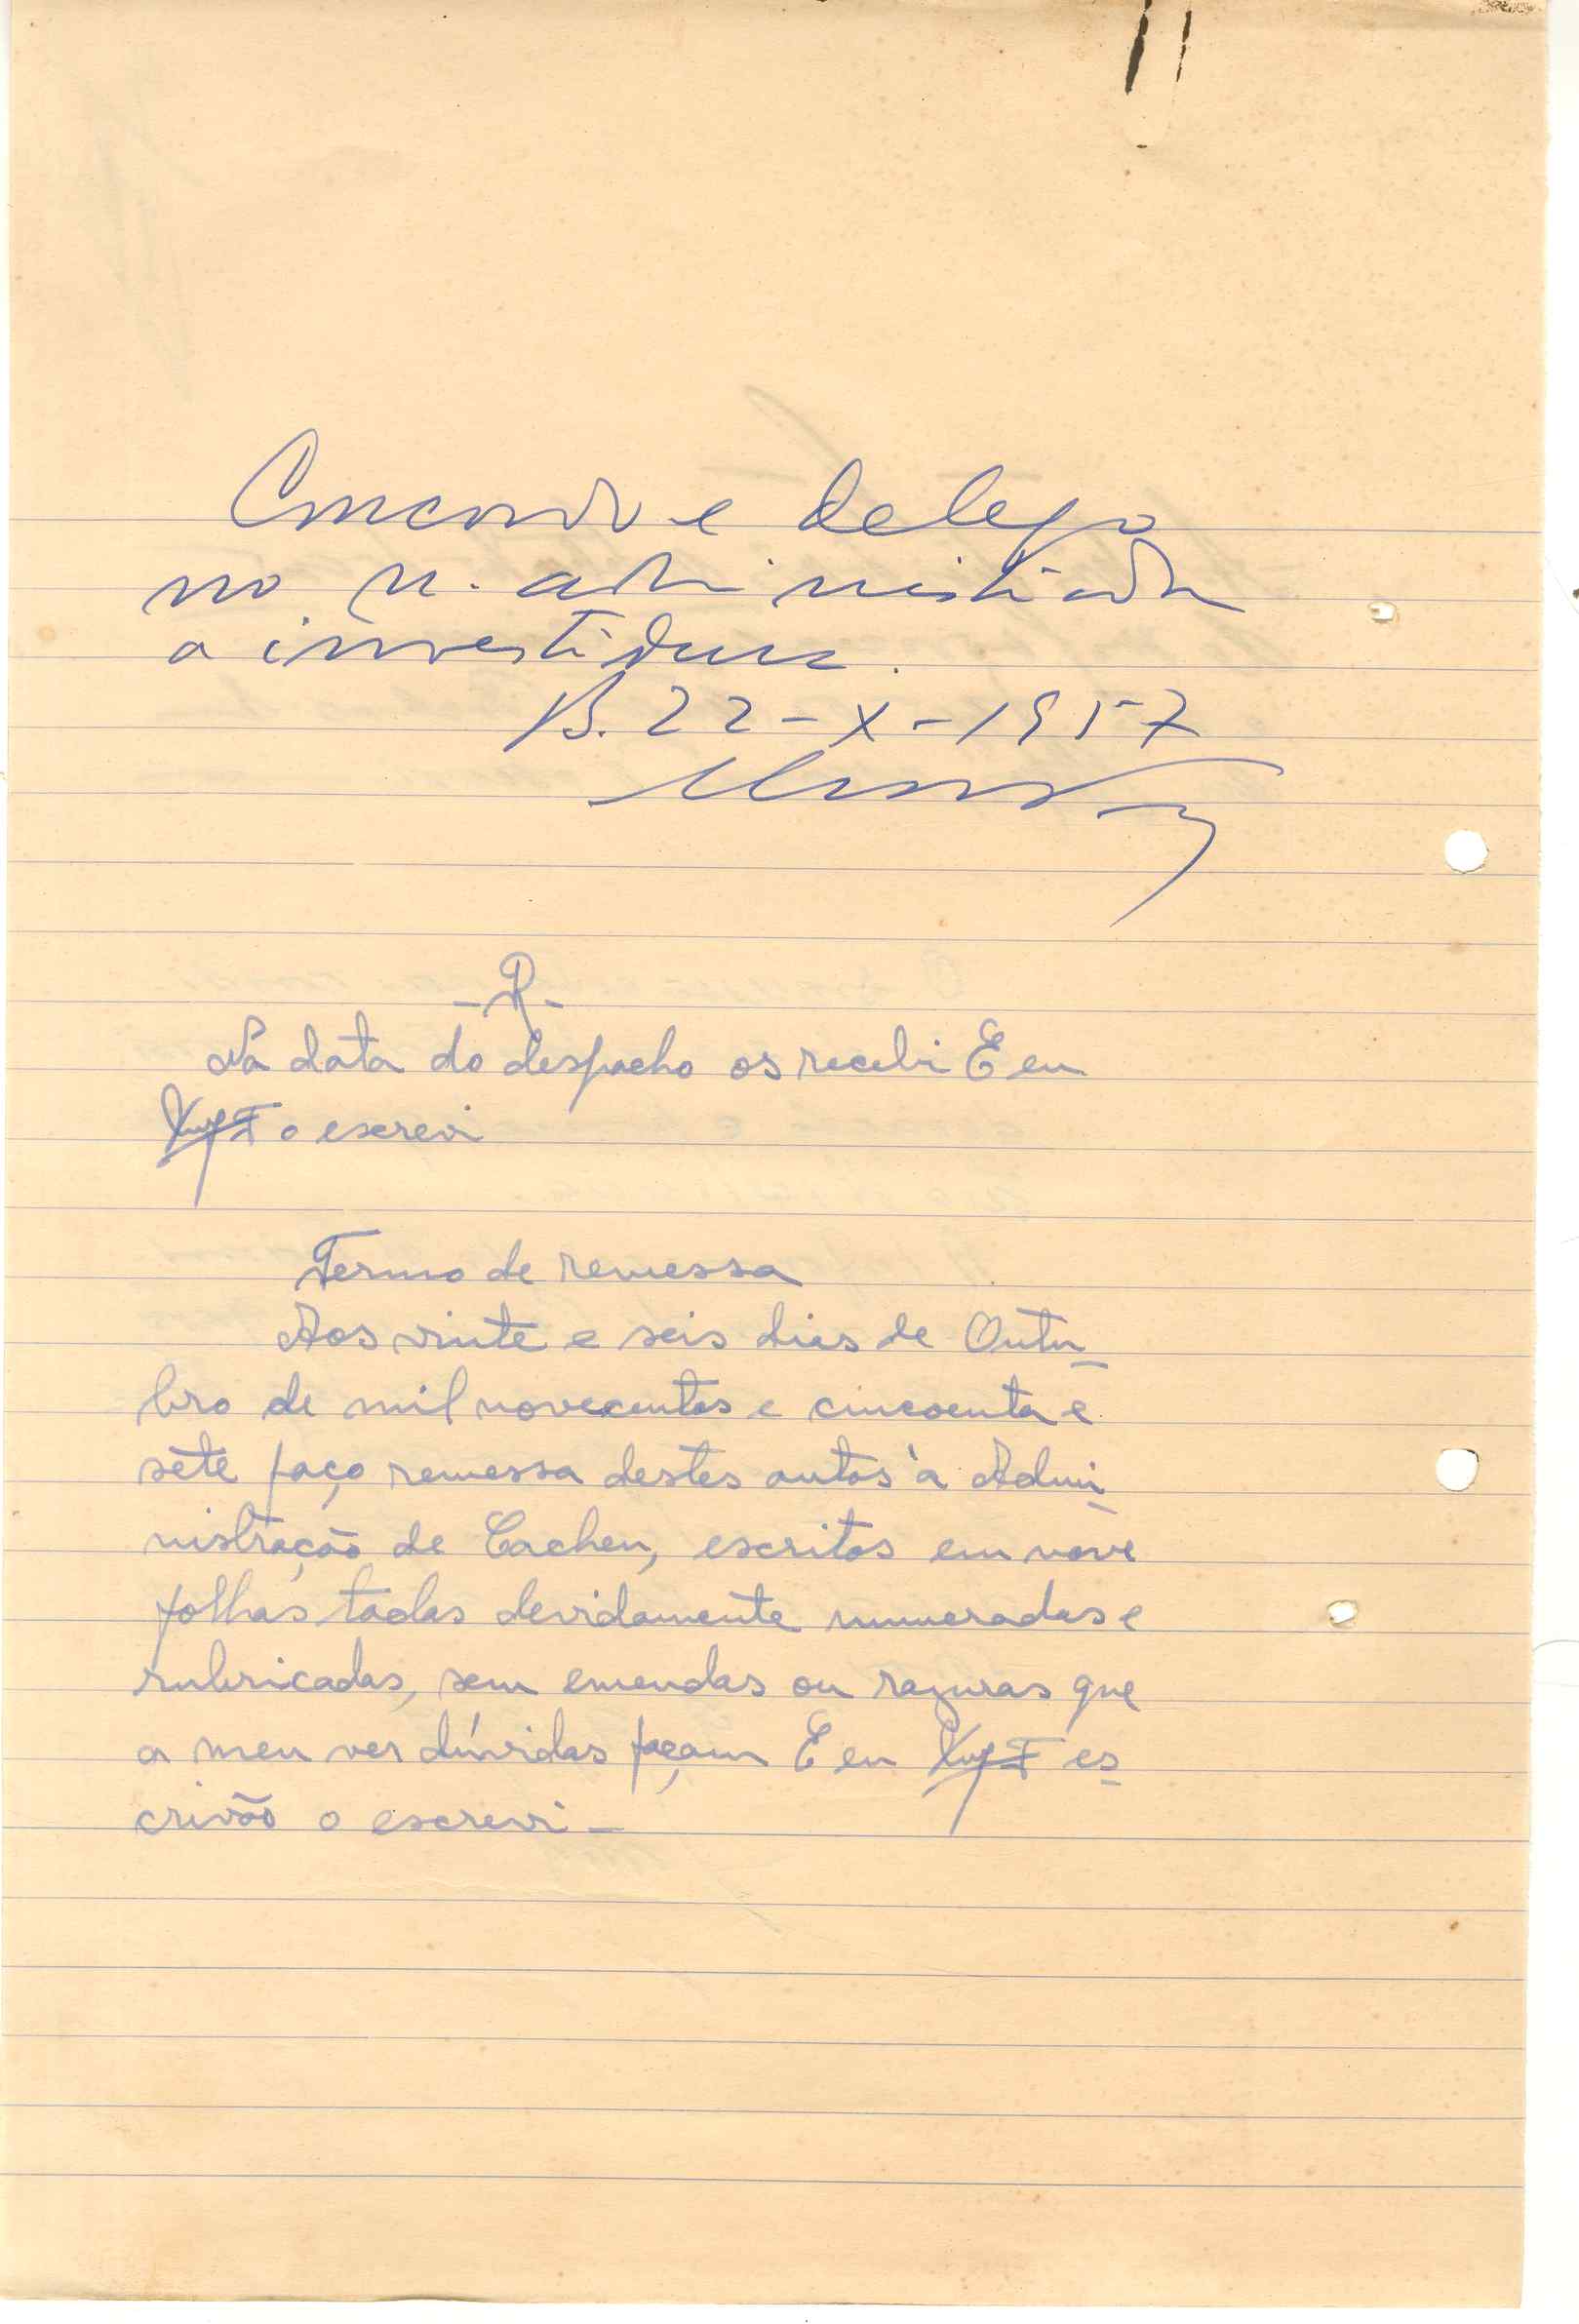 Concordo e delego
no sr. administrador
a investidura.
B. 22-X-1957
-R-
Na data do despacho os recebi E eu
o escrevi
Termo de remessa
Aos vinte e seis dias de Outu_
bro de mil novecentos e cincoenta e
sete faço remessa destes autos à Admi_
nistração de Cacheu, escritos em nove
folhas todas devidamente numeradas e
rubricadas, sem emendas ou razuras que
a meu ver dúvidas façam E eu es_
crivão o escrevi _